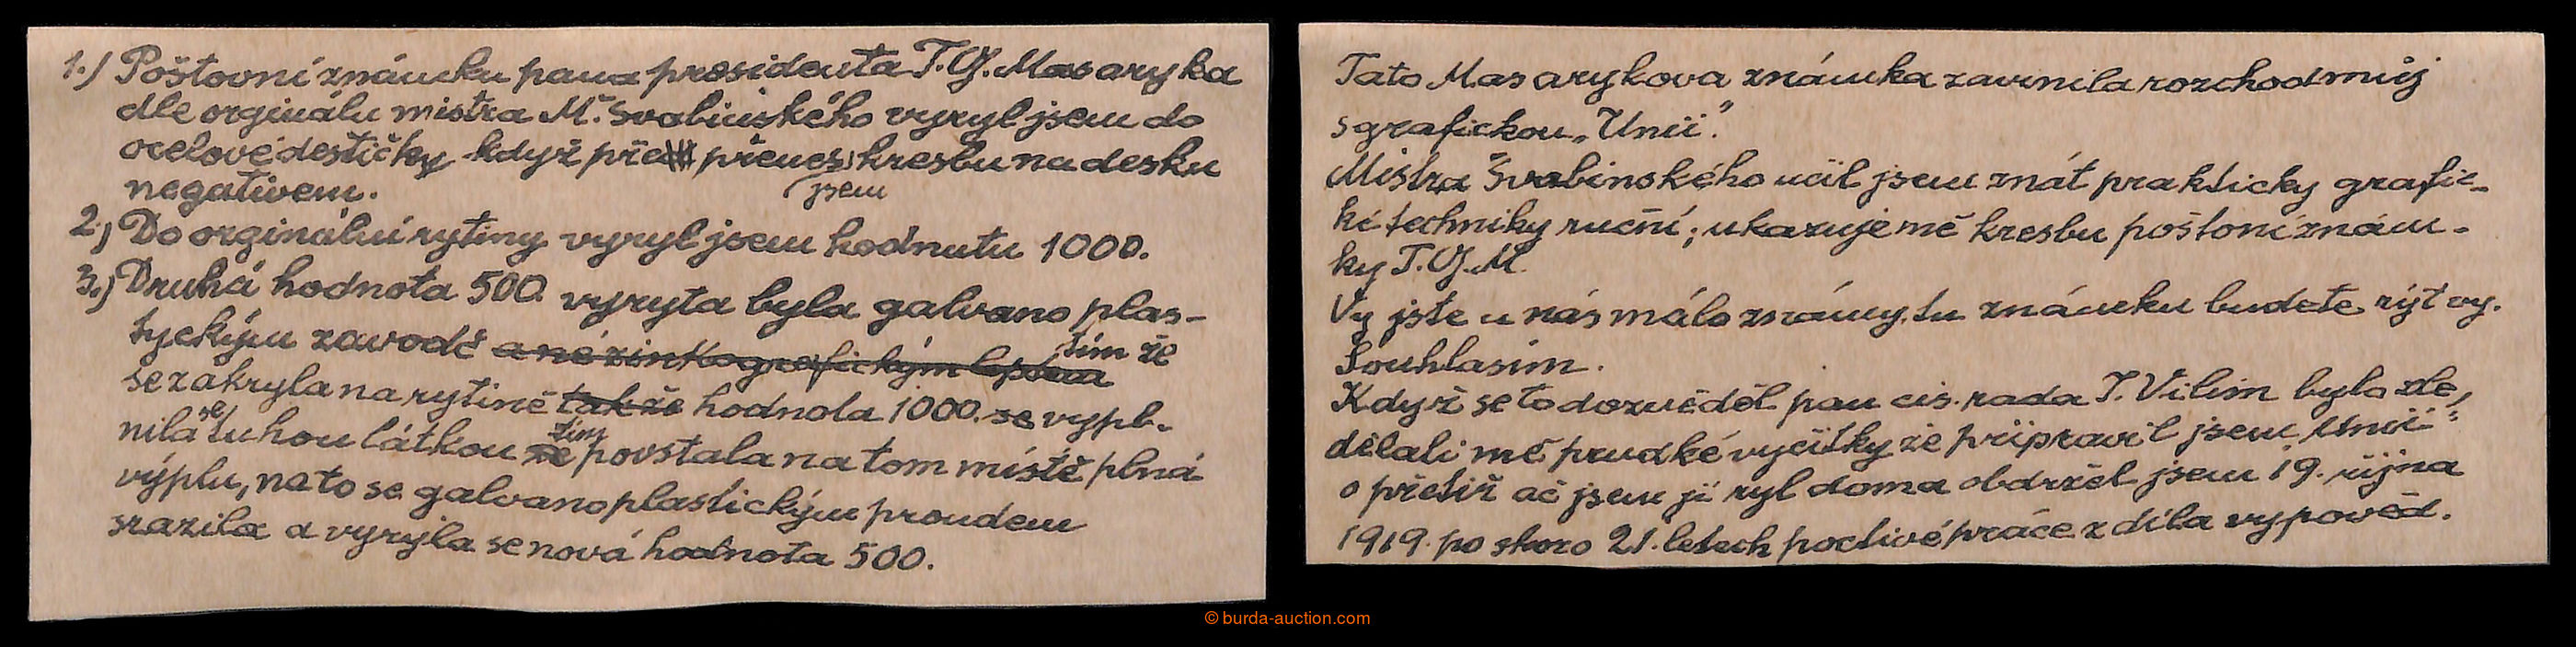 1.) Poštovní známku pana presidenta T.G. Masaryka
dle orginálu mistra M. Švabinského vyryl jsem do
ocelové destičky když pře přenes kresbu na desku
negativem. jsem
2.) Do orginální rytiny vyryl jsem hodnutu 1000.
3.) Druhá hodnota 500. vyryta byla galvano plas-
tyckým zavodě a né zinkografickým leptem tím že
se zakryla na rytině takže hodnola 1000. se vypl-
nila se tuhou látkou že tímy povstala na tom místě plná
výplu, na to se galvanoplastickým proudem
srazila a vyryla se nová hodnota 500.
Tato Masarykova známka zavinila rozchod můj
s grafickou „Unii".
Mistra Švabinského učil jsem znát prakticky grafic-
ké techniky ruční; ukazuje mě kresbu poštoní znám-
ky T.G.M.
Vy jste u nás málo známy, tu známku budete rýt vy.
Souhlasím.
Když se to dozvěděl pan cis. rada T. Vilim bylo zle,
dělali mě prudké vyčítky že připravil jsem „Unii"
o přetiž ač jsem ji ryl doma obdržel jsem 19. října
1919. po skoro 21. letech poctivé práce z díla vypověd.
© burda-auction.com